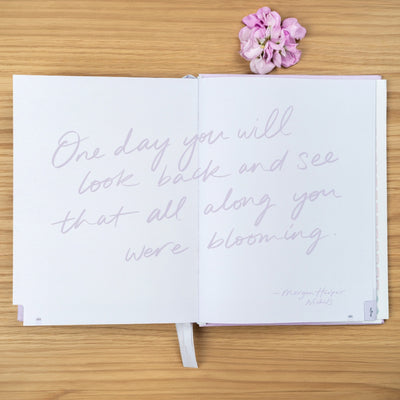 One day you will
look back and see
that all along you
were blooming.
— Morgan Harper
Nichols